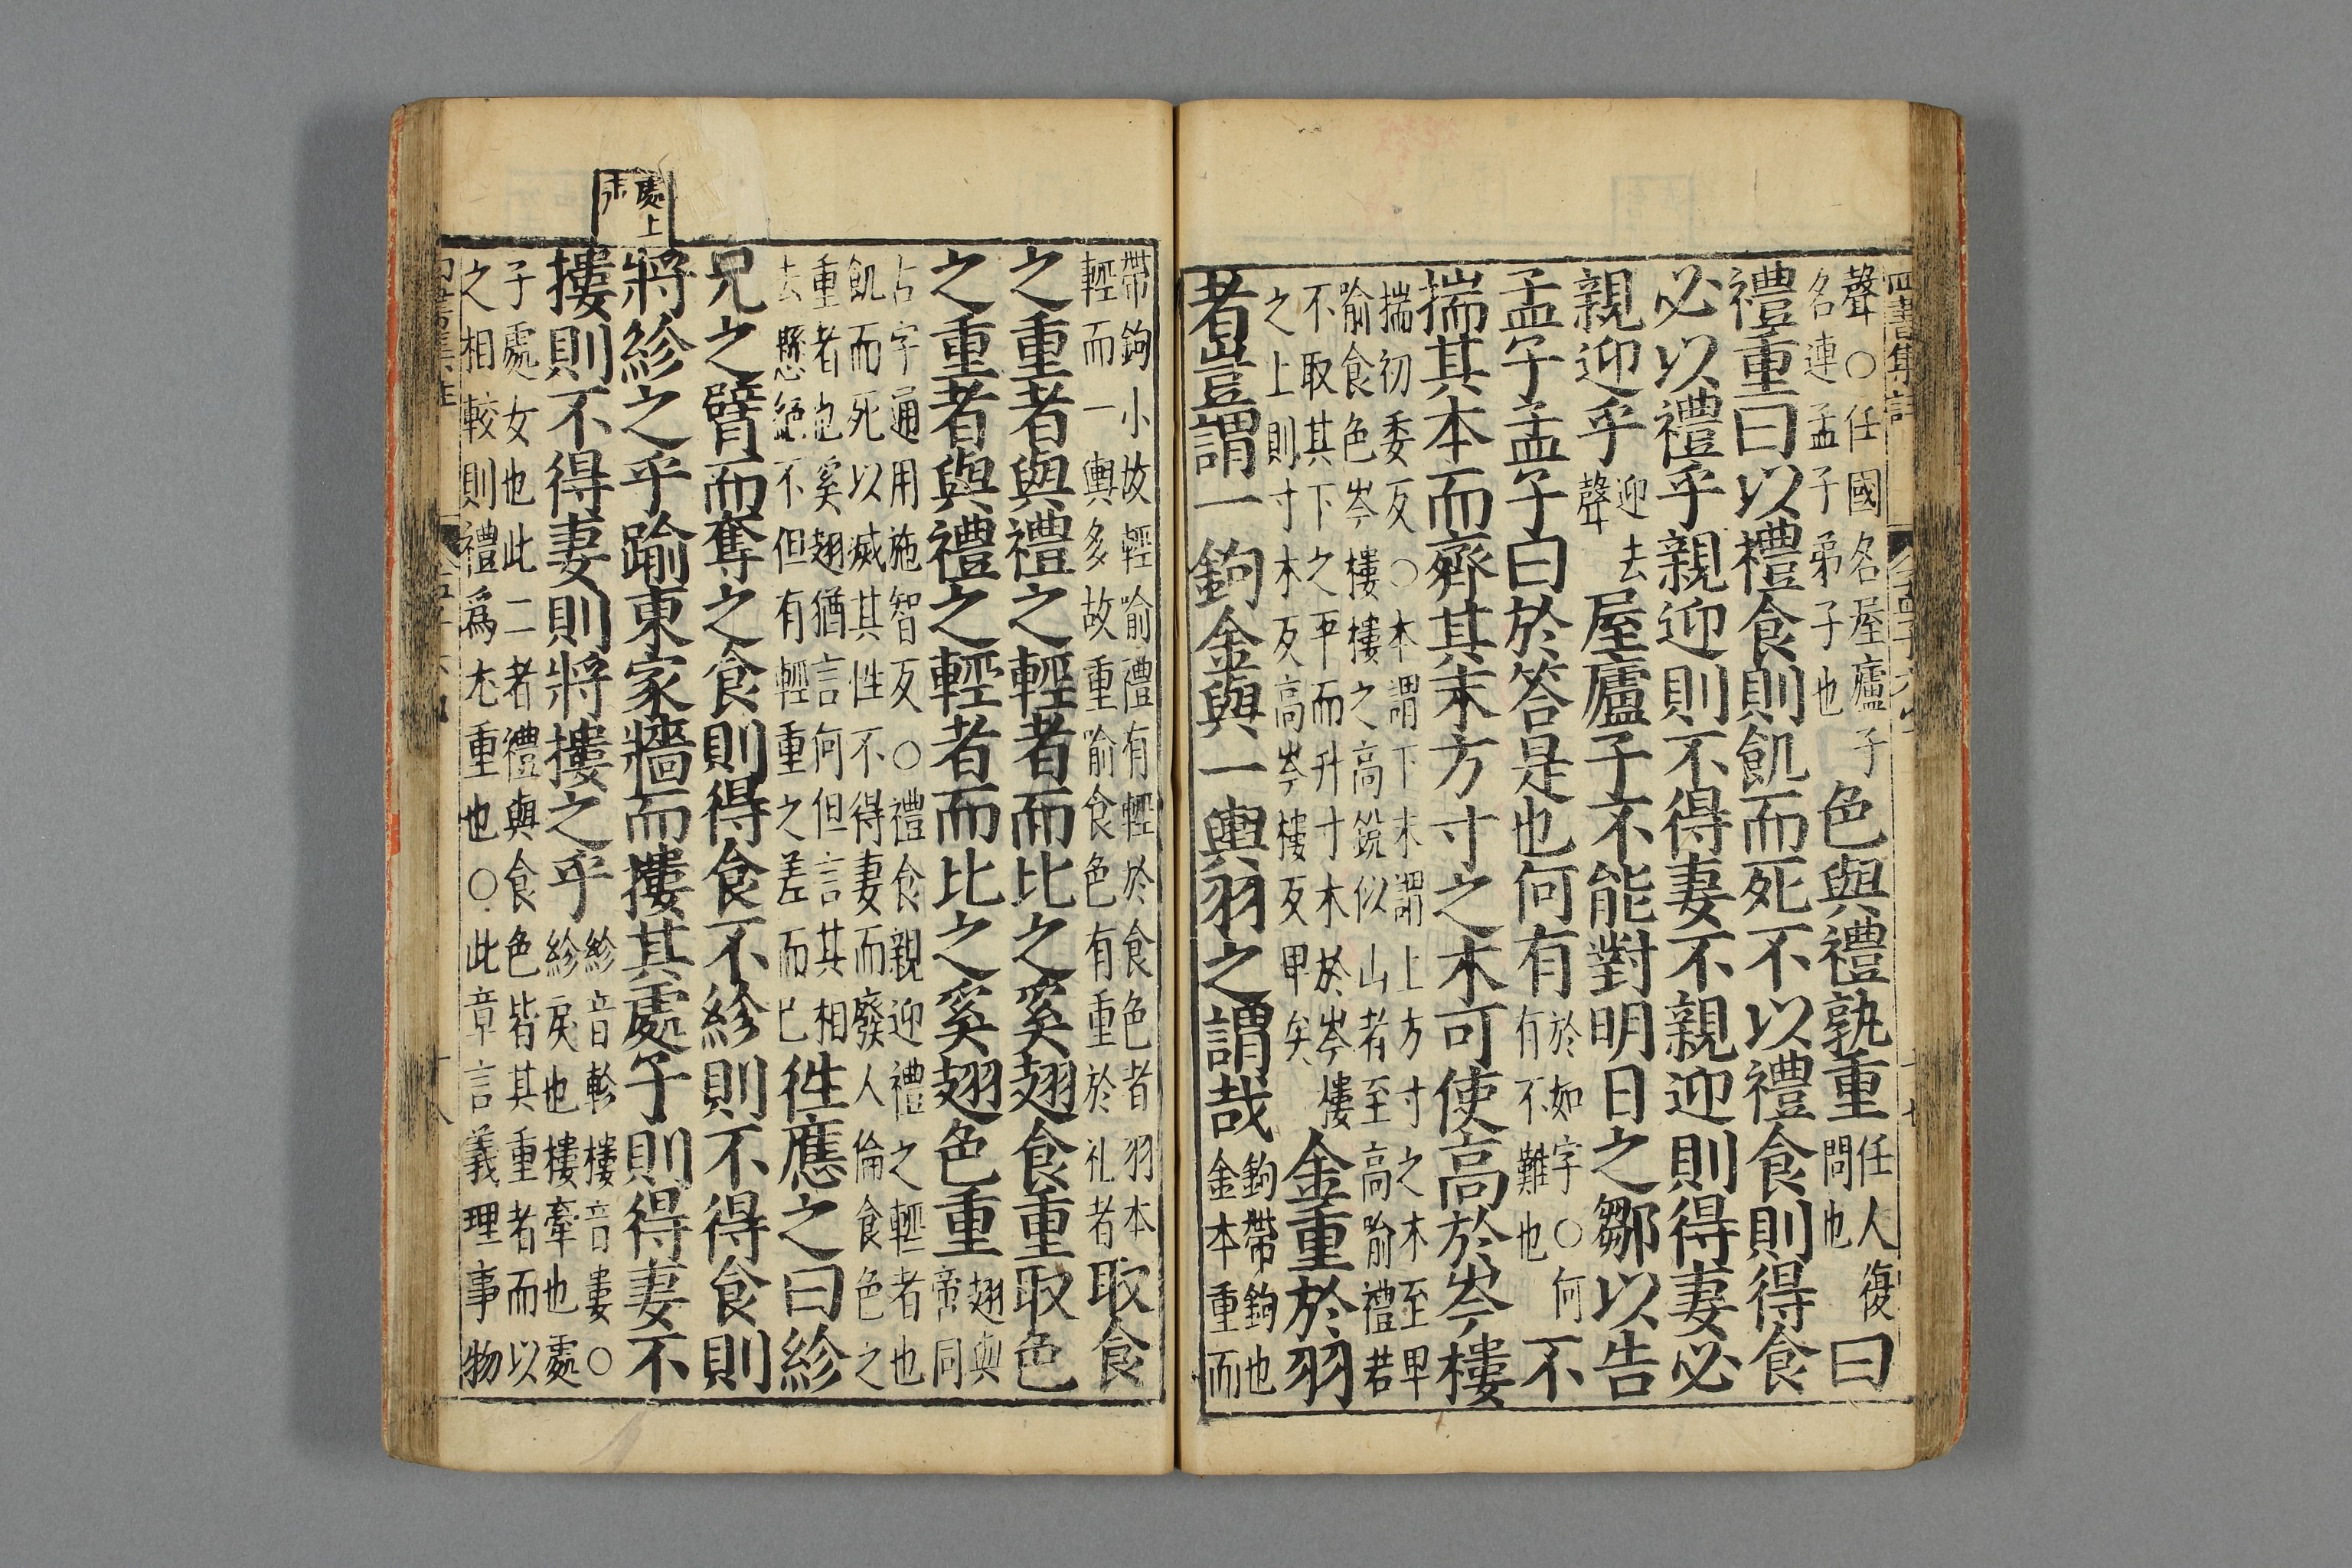 四書集註
聲○任國名屋廬子
名連孟子弟子也
色與禮孰重
任人復
問也
曰
禮重曰以禮食則飢而死不以禮食則得食
必以禮乎親迎則不得妻不親迎則得妻必
親迎乎
迎去
聲
屋廬子不能對明日之鄒以告
孟子孟子曰於答是也何有
於如字○何
有不難也
不
揣其本而齊其末方寸之木可使高於岑樓
揣初委反○本謂下末謂上方寸之木至卑
喻食色岑樓樓之高銳似山者至高喻禮若
不取其下之平而升寸木於岑樓
之上則寸木反高岑樓反卑矣
金重於羽
者豈謂一鉤金與一輿羽之謂哉
鉤帶鉤也
金本重而
帶鉤小故輕喻禮有輕於食色者羽本
輕而一輿多故重喻食色有重於礼者
取食
之重者與禮之輕者而比之奚翅食重取色
之重者與禮之輕者而比之奚翅色重
翅與
啻同
古字通用施智反○禮食親迎禮之輕者也
飢而死以滅其性不得妻而廢人倫食色之
重者也奚翅猶言何但言其相
去懸絕不但有輕重之差而已
徃應之曰紾
兄之臂而奪之食則得食不紾則不得食則
將紾之乎踰東家牆而摟其處子則得妻不
摟則不得妻則將摟之乎
紾音軫摟音婁○
紾戾也摟牽也處
子處女也此二者禮與食色皆其重者而以
之相較則禮爲尤重也○此章言義理事物
處上